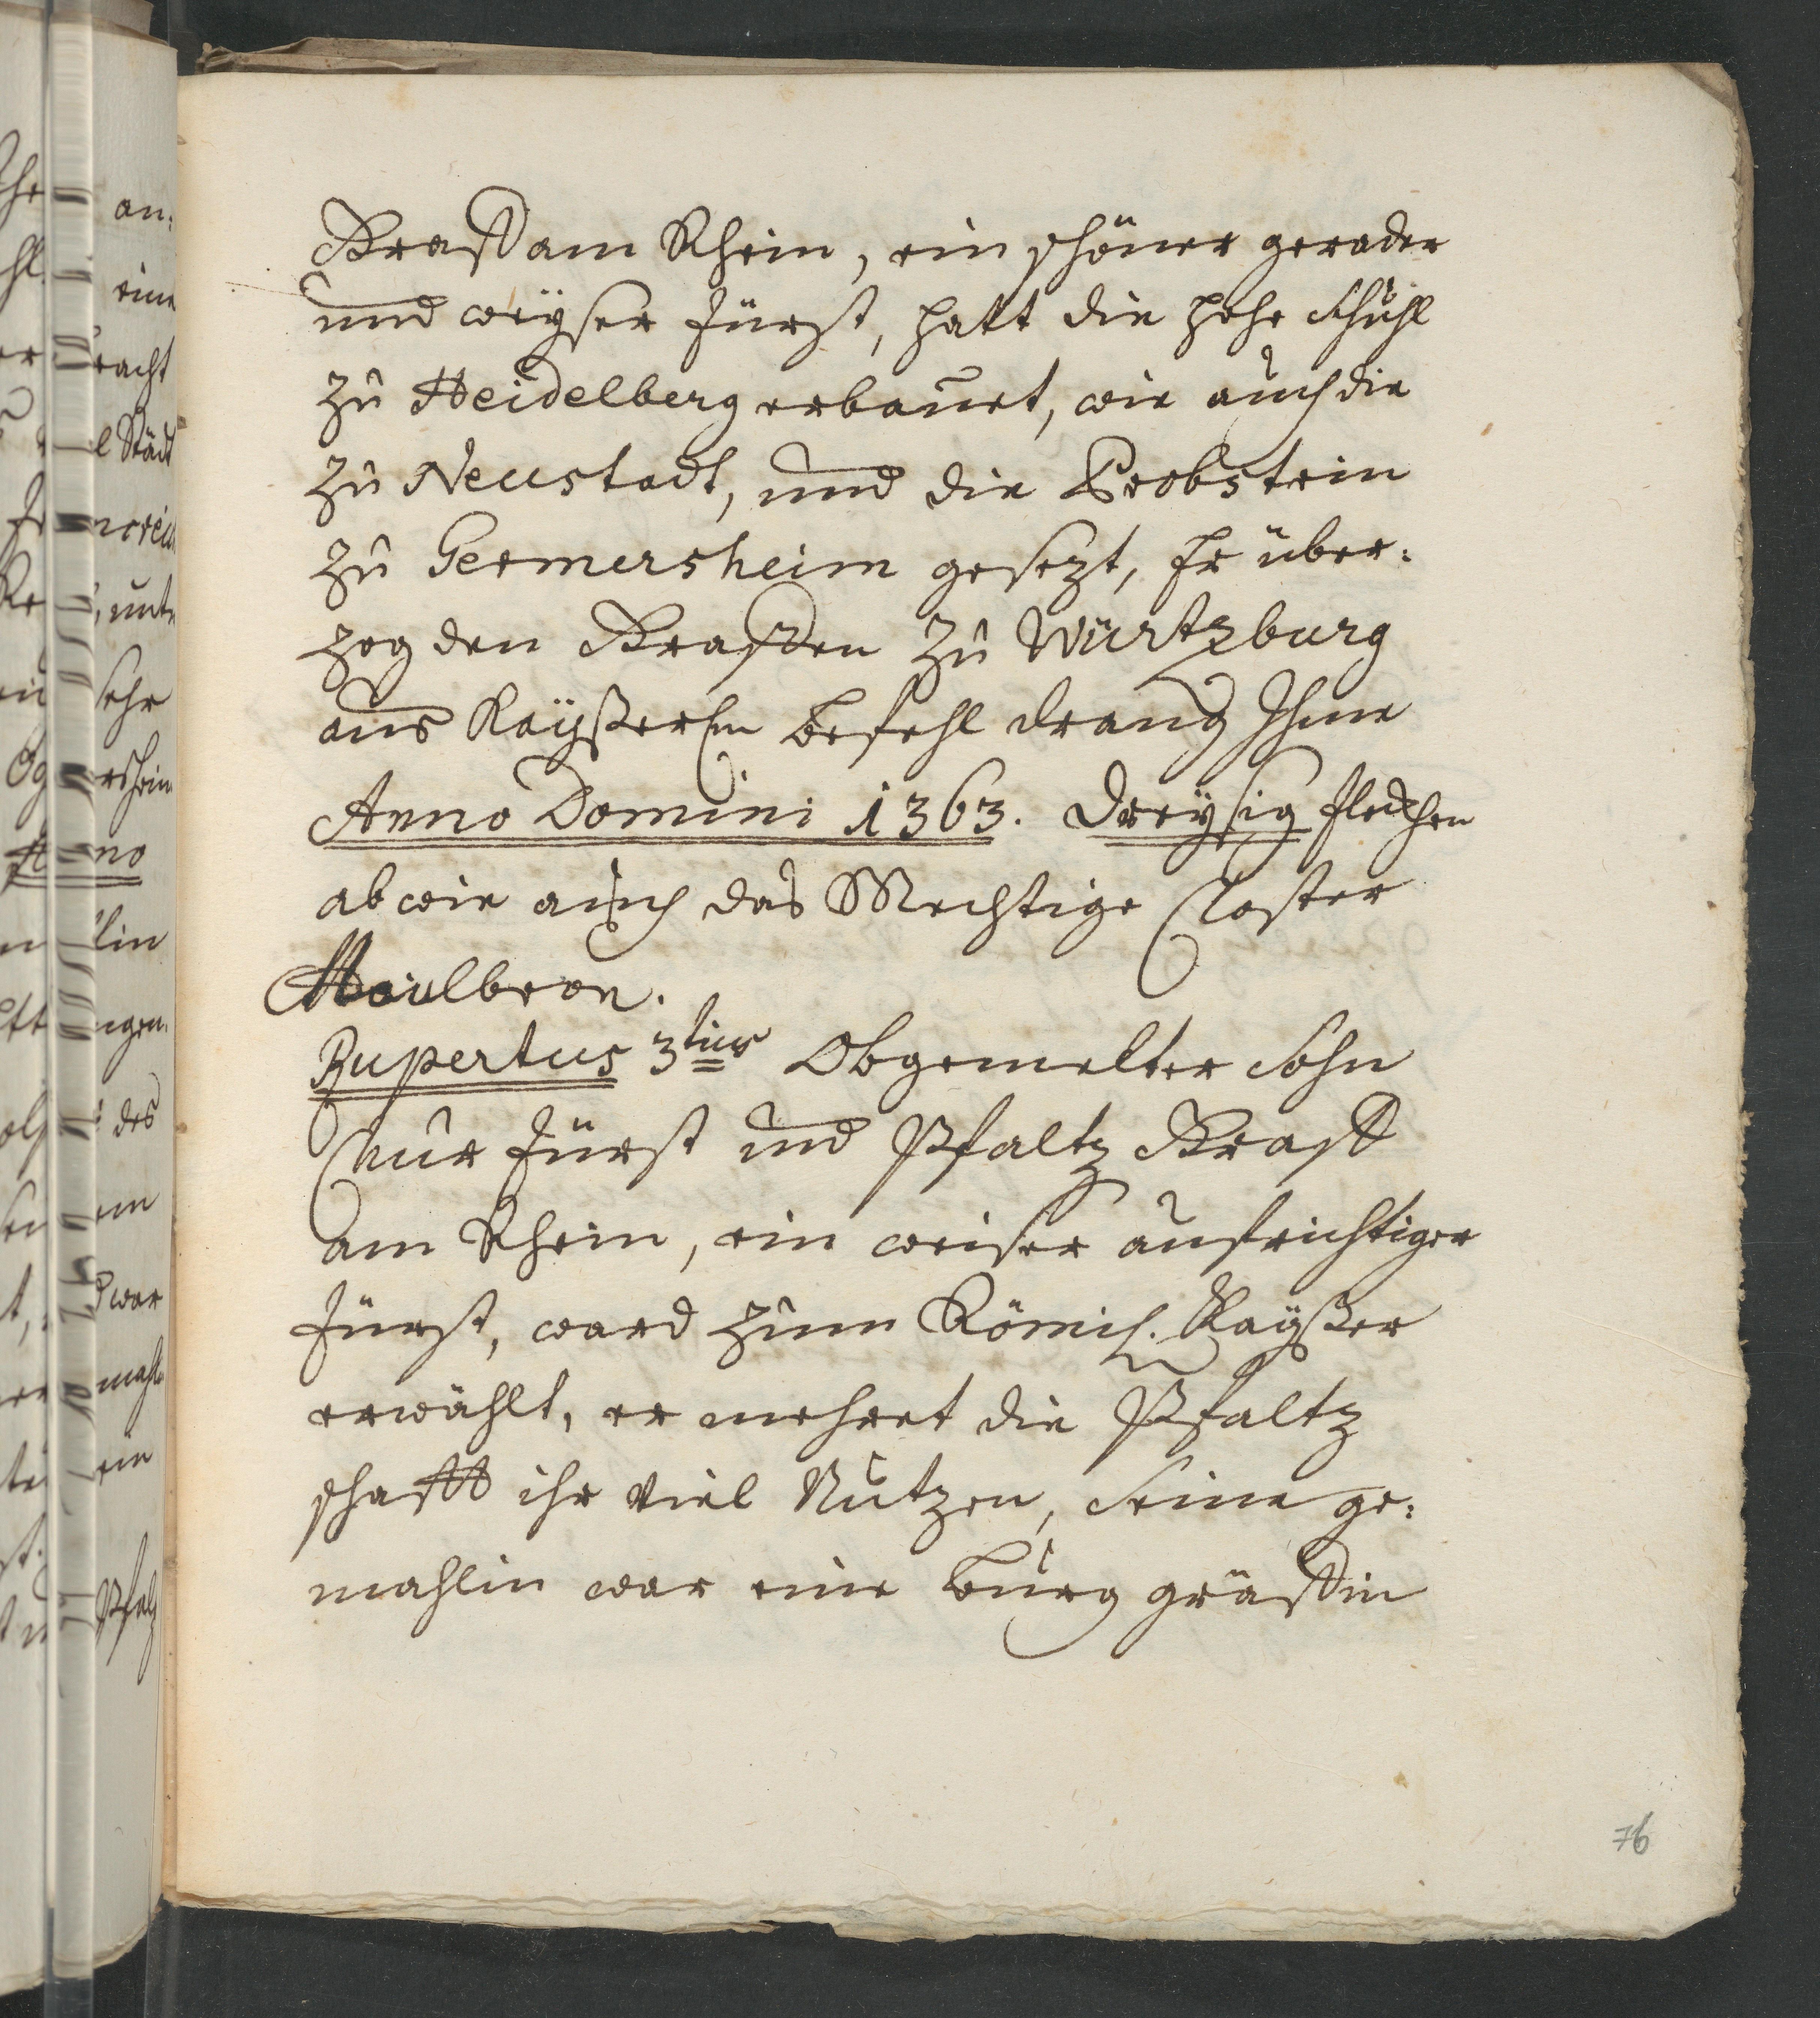 Graff am Rhein, ein schöner gerader
und weÿser Fürst, hatt die hohe Schuhl
zu Heidelberg erbauet, wie auch die
zu Neustadt, und die Probstein
zu Germersheim gesezt, Er über:
zog den Graffen zu Würtzburg
aus Kaÿßerlm Befehl drang Ihme
Anno Domini 1363. dreÿsig flecken
ab wie auch das Mechtige Closter
Maulbron.
Rupertus 3tius Obgemelter Sohn
Chur Fürst und Pfaltz Graff
am Rhein, ein weiser aufrichtiger
Fürst, ward zum Römisch. Kaÿßer
erwählt, er mehret die Pfaltz
schafft ihr viel Nutzen, Seine ge:
mahlin war eine Burg gräffin
76